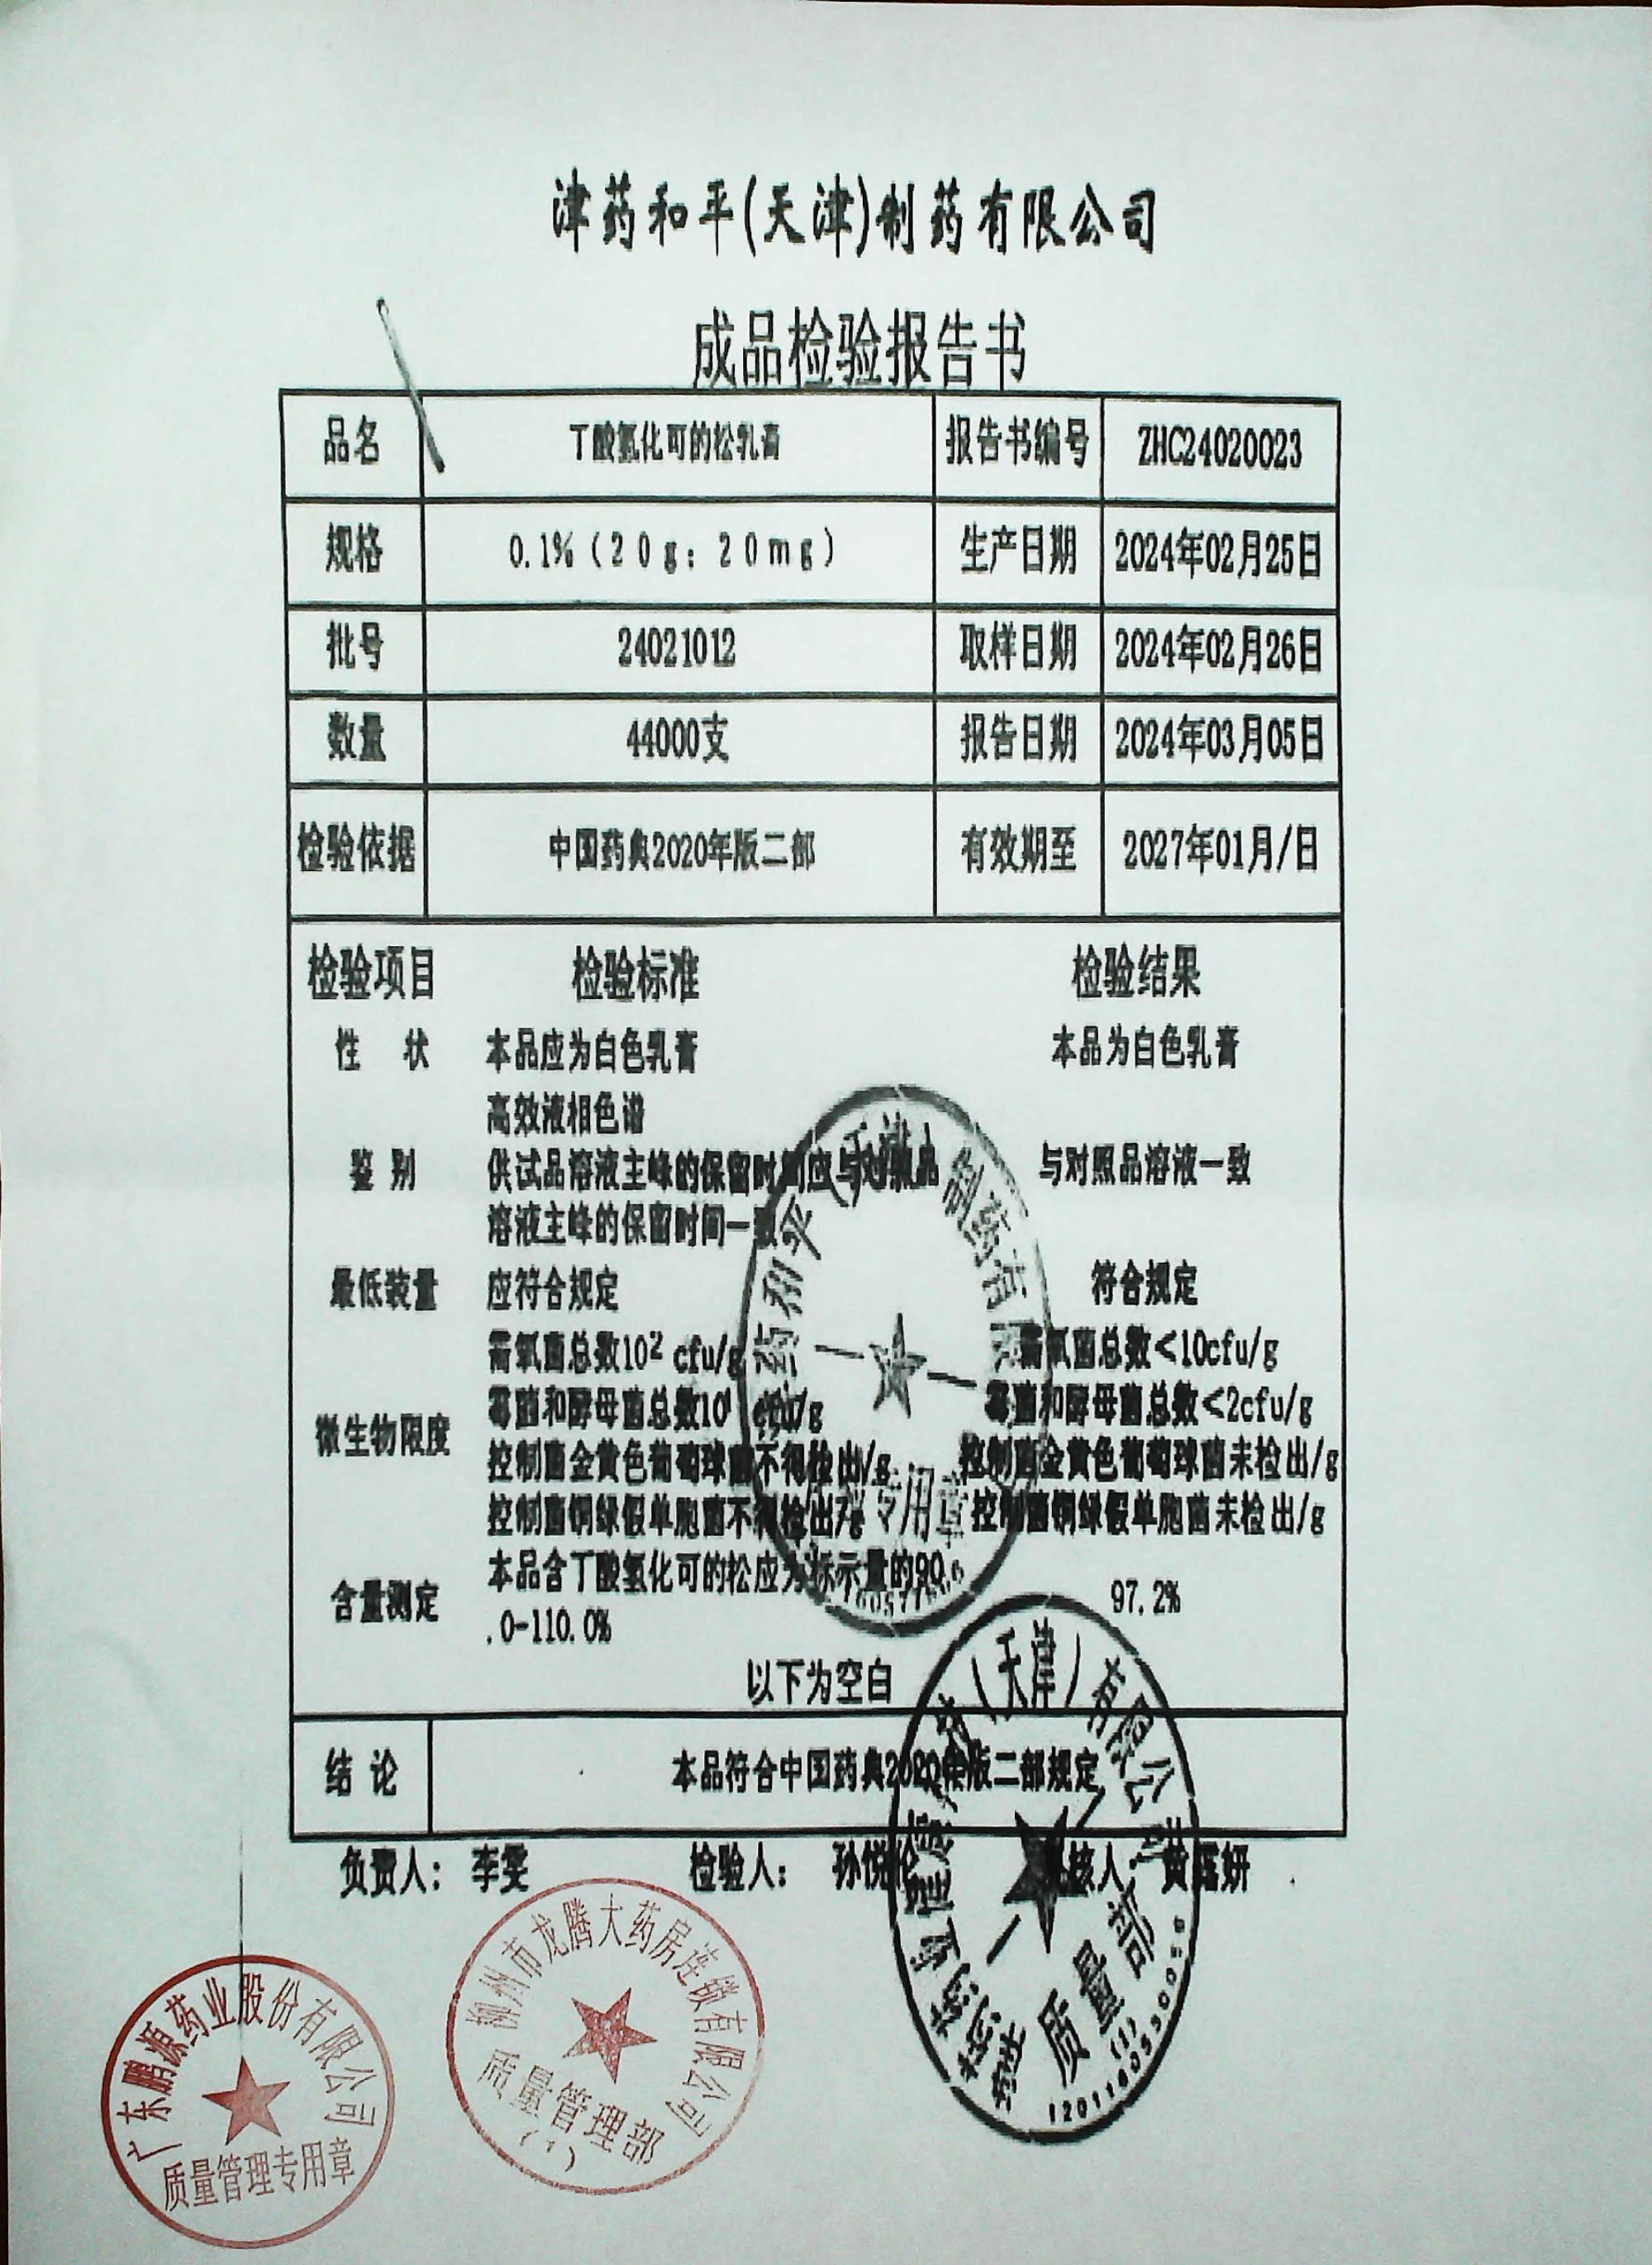 津药和平(天津)制药有限公司
成品检验报告书
品名 丁酸氢化可的松乳膏 报告书编号 ZHC24020023
规格 0.1%(20g:20mg) 生产日期 2024年02月25日
批号 24021012 取样日期 2024年02月26日
数量 44000支 报告日期 2024年03月05日
检验依据 中国药典2020年版二部 有效期至 2027年01月/日
检验项目 检验标准 检验结果
性 状 本品应为白色乳膏 本品为白色乳膏
高效液相色谱
鉴 别 供试品溶液主峰的保留时间应与对照品 与对照品溶液一致
溶液主峰的保留时间一致
最低装量 应符合规定 符合规定
需氧菌总数10² cfu/g 需氧菌总数<10cfu/g
霉菌和酵母菌总数10¹ cfu/g 霉菌和酵母菌总数<2cfu/g
微生物限度
控制菌金黄色葡萄球菌不得检出/g 控制菌金黄色葡萄球菌未检出/g
控制菌铜绿假单胞菌不得检出/g 控制菌铜绿假单胞菌未检出/g
本品含丁酸氢化可的松应为标示量的90
含量测定 97.2%
.0-110.0%
以下为空白
结 论 本品符合中国药典2020年版二部规定
负责人: 李雯 检验人: 孙悦 核人 黄露妍
药和平(天津)制药有
专用章
(天津) 有限公
质量部
(1)
广东鹏源药业股份有限公司
质量管理专用章
柳州市龙腾大药房连锁有限公司
质量管理部
(1)